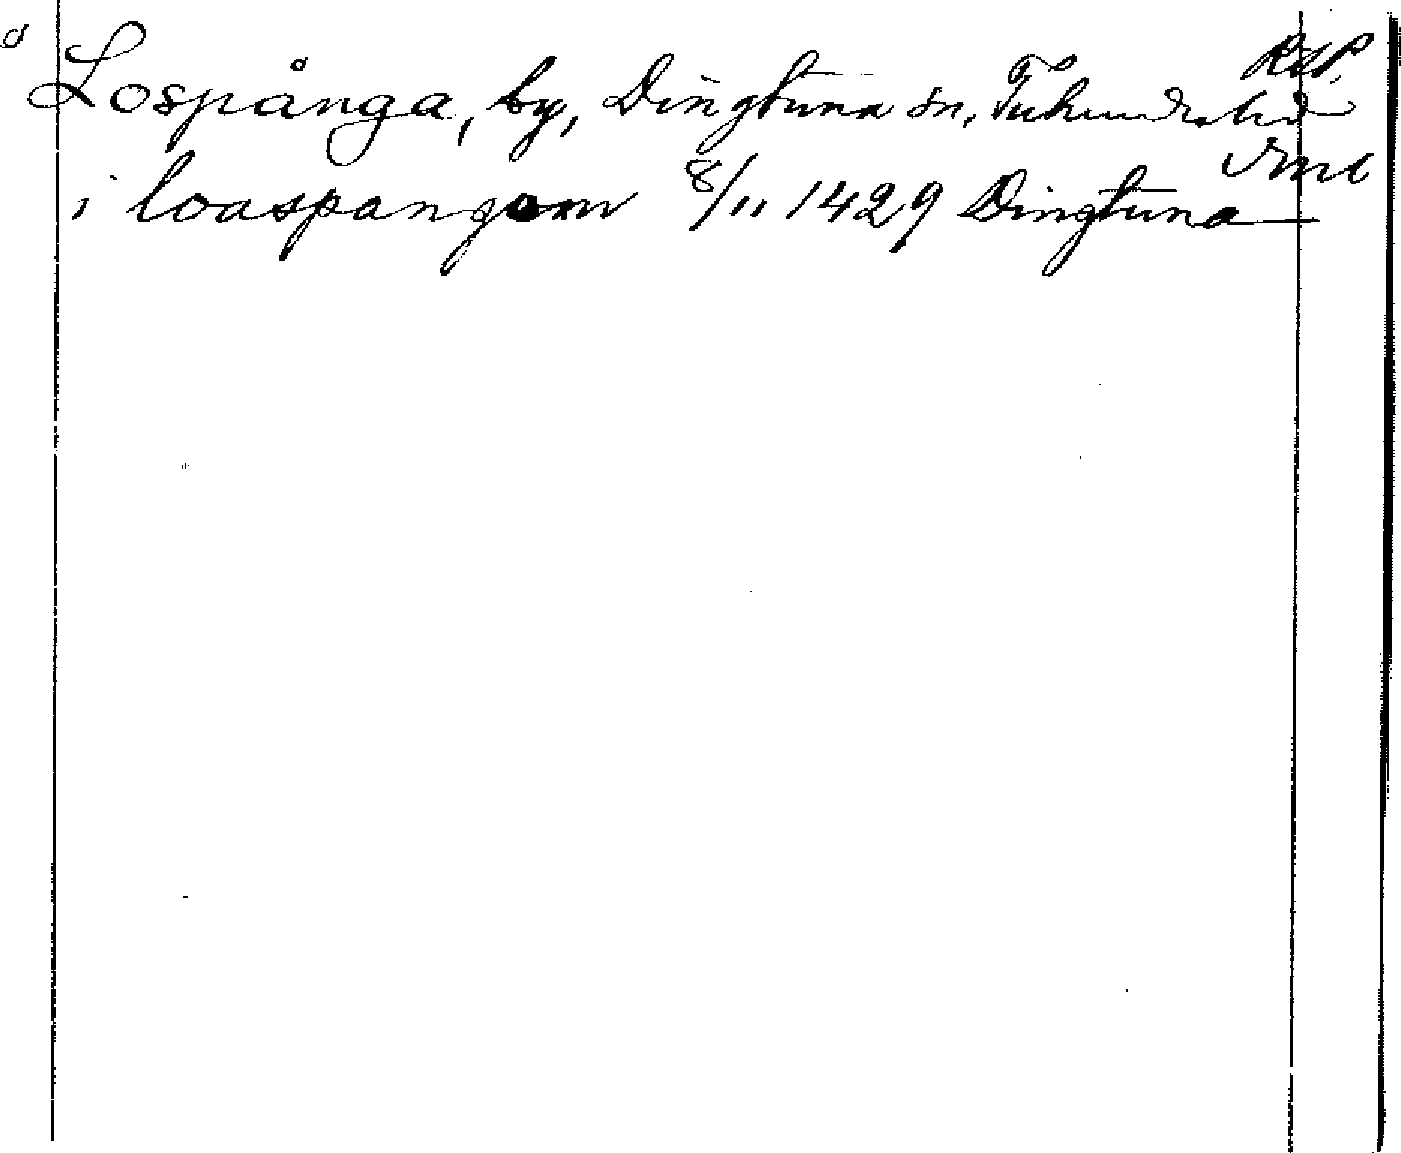 RAP.
Lospånga, by, Dingtuna sn, Tuhundra hd
Vml
i loaspangom 8/11 1429 Dingtuna